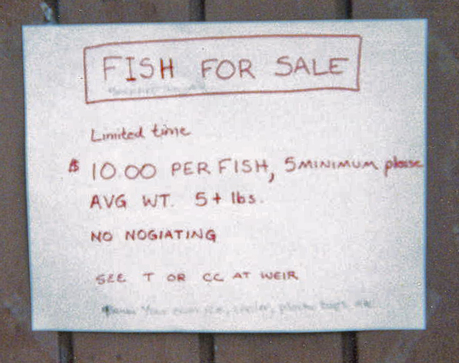 FISH FOR SALE
Limited time
$ 10.00 PER FISH, 5 MINIMUM please
AVG WT. 5+ lbs.
NO NOGIATING
SEE T OR CC AT WEIR
Your own ice, cooler, plastic bags etc